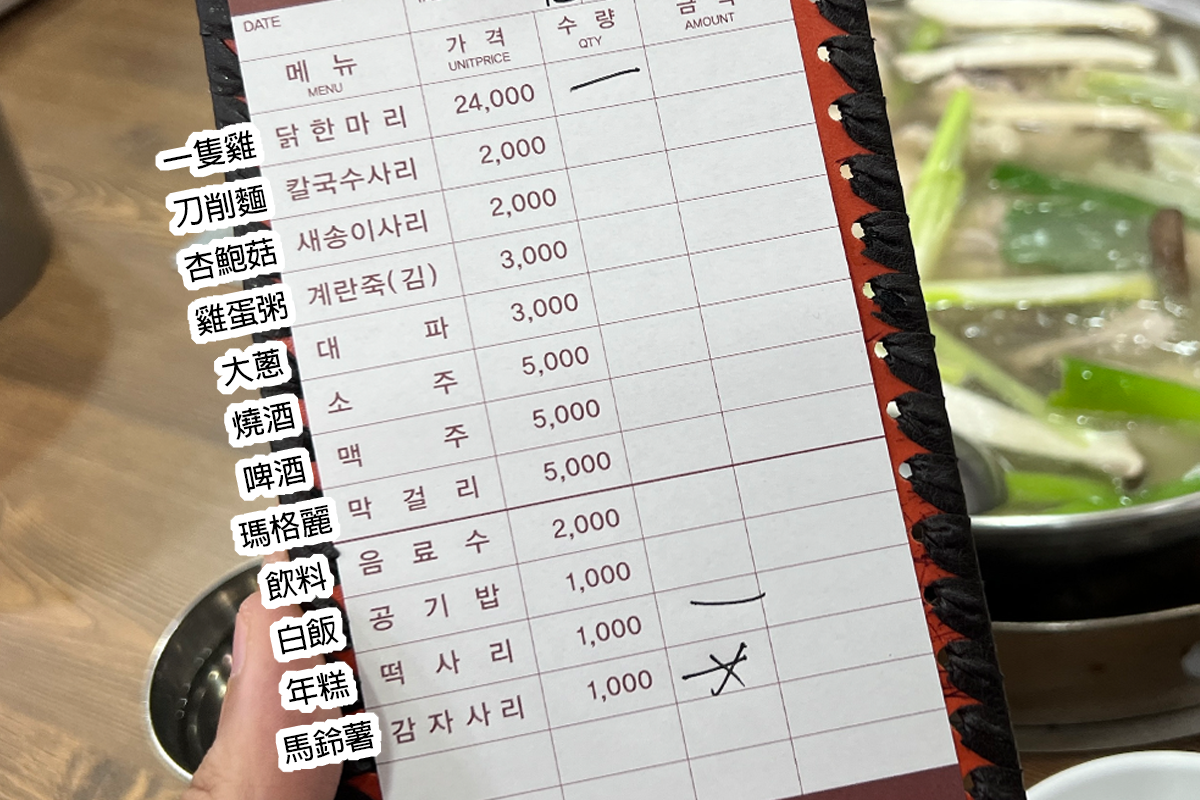 DATE
메 뉴 가 격 수 량
MENU UNITPRICE QTY AMOUNT
一隻雞 닭 한 마 리 24,000 一
刀削麵 칼국수사리 2,000
杏鮑菇 새송이사리 2,000
雞蛋粥 계란죽(김) 3,000
大蔥 대 파 3,000
燒酒 소 주 5,000
啤酒 맥 주 5,000
瑪格麗 막 걸 리 5,000
飲料 음 료 수 2,000
白飯 공 기 밥 1,000
年糕 떡 사 리 1,000 一
馬鈴薯 감 자 사 리 1,000